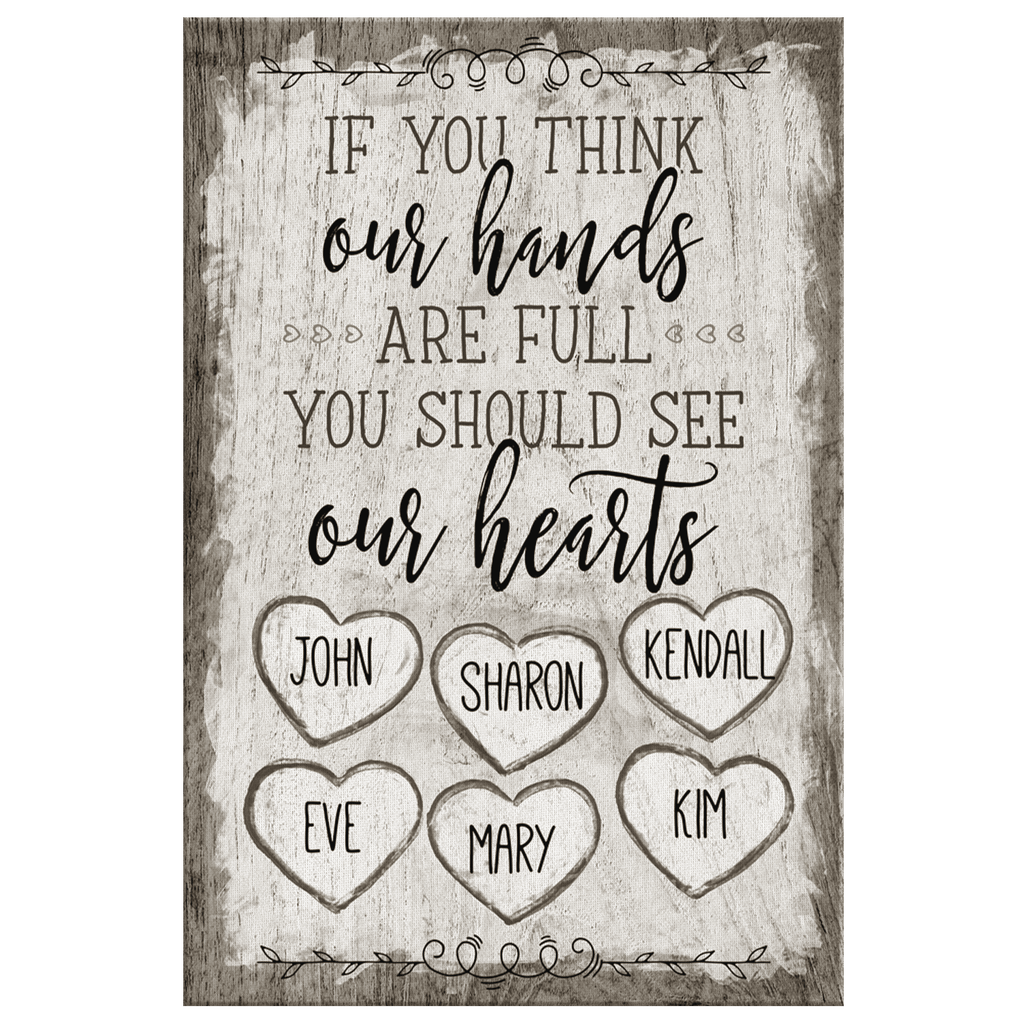 IF YOU THINK
our hands
ARE FULL
YOU SHOULD SEE
our hearts
JOHN
SHARON
KENDALL
EVE
MARY
KIM